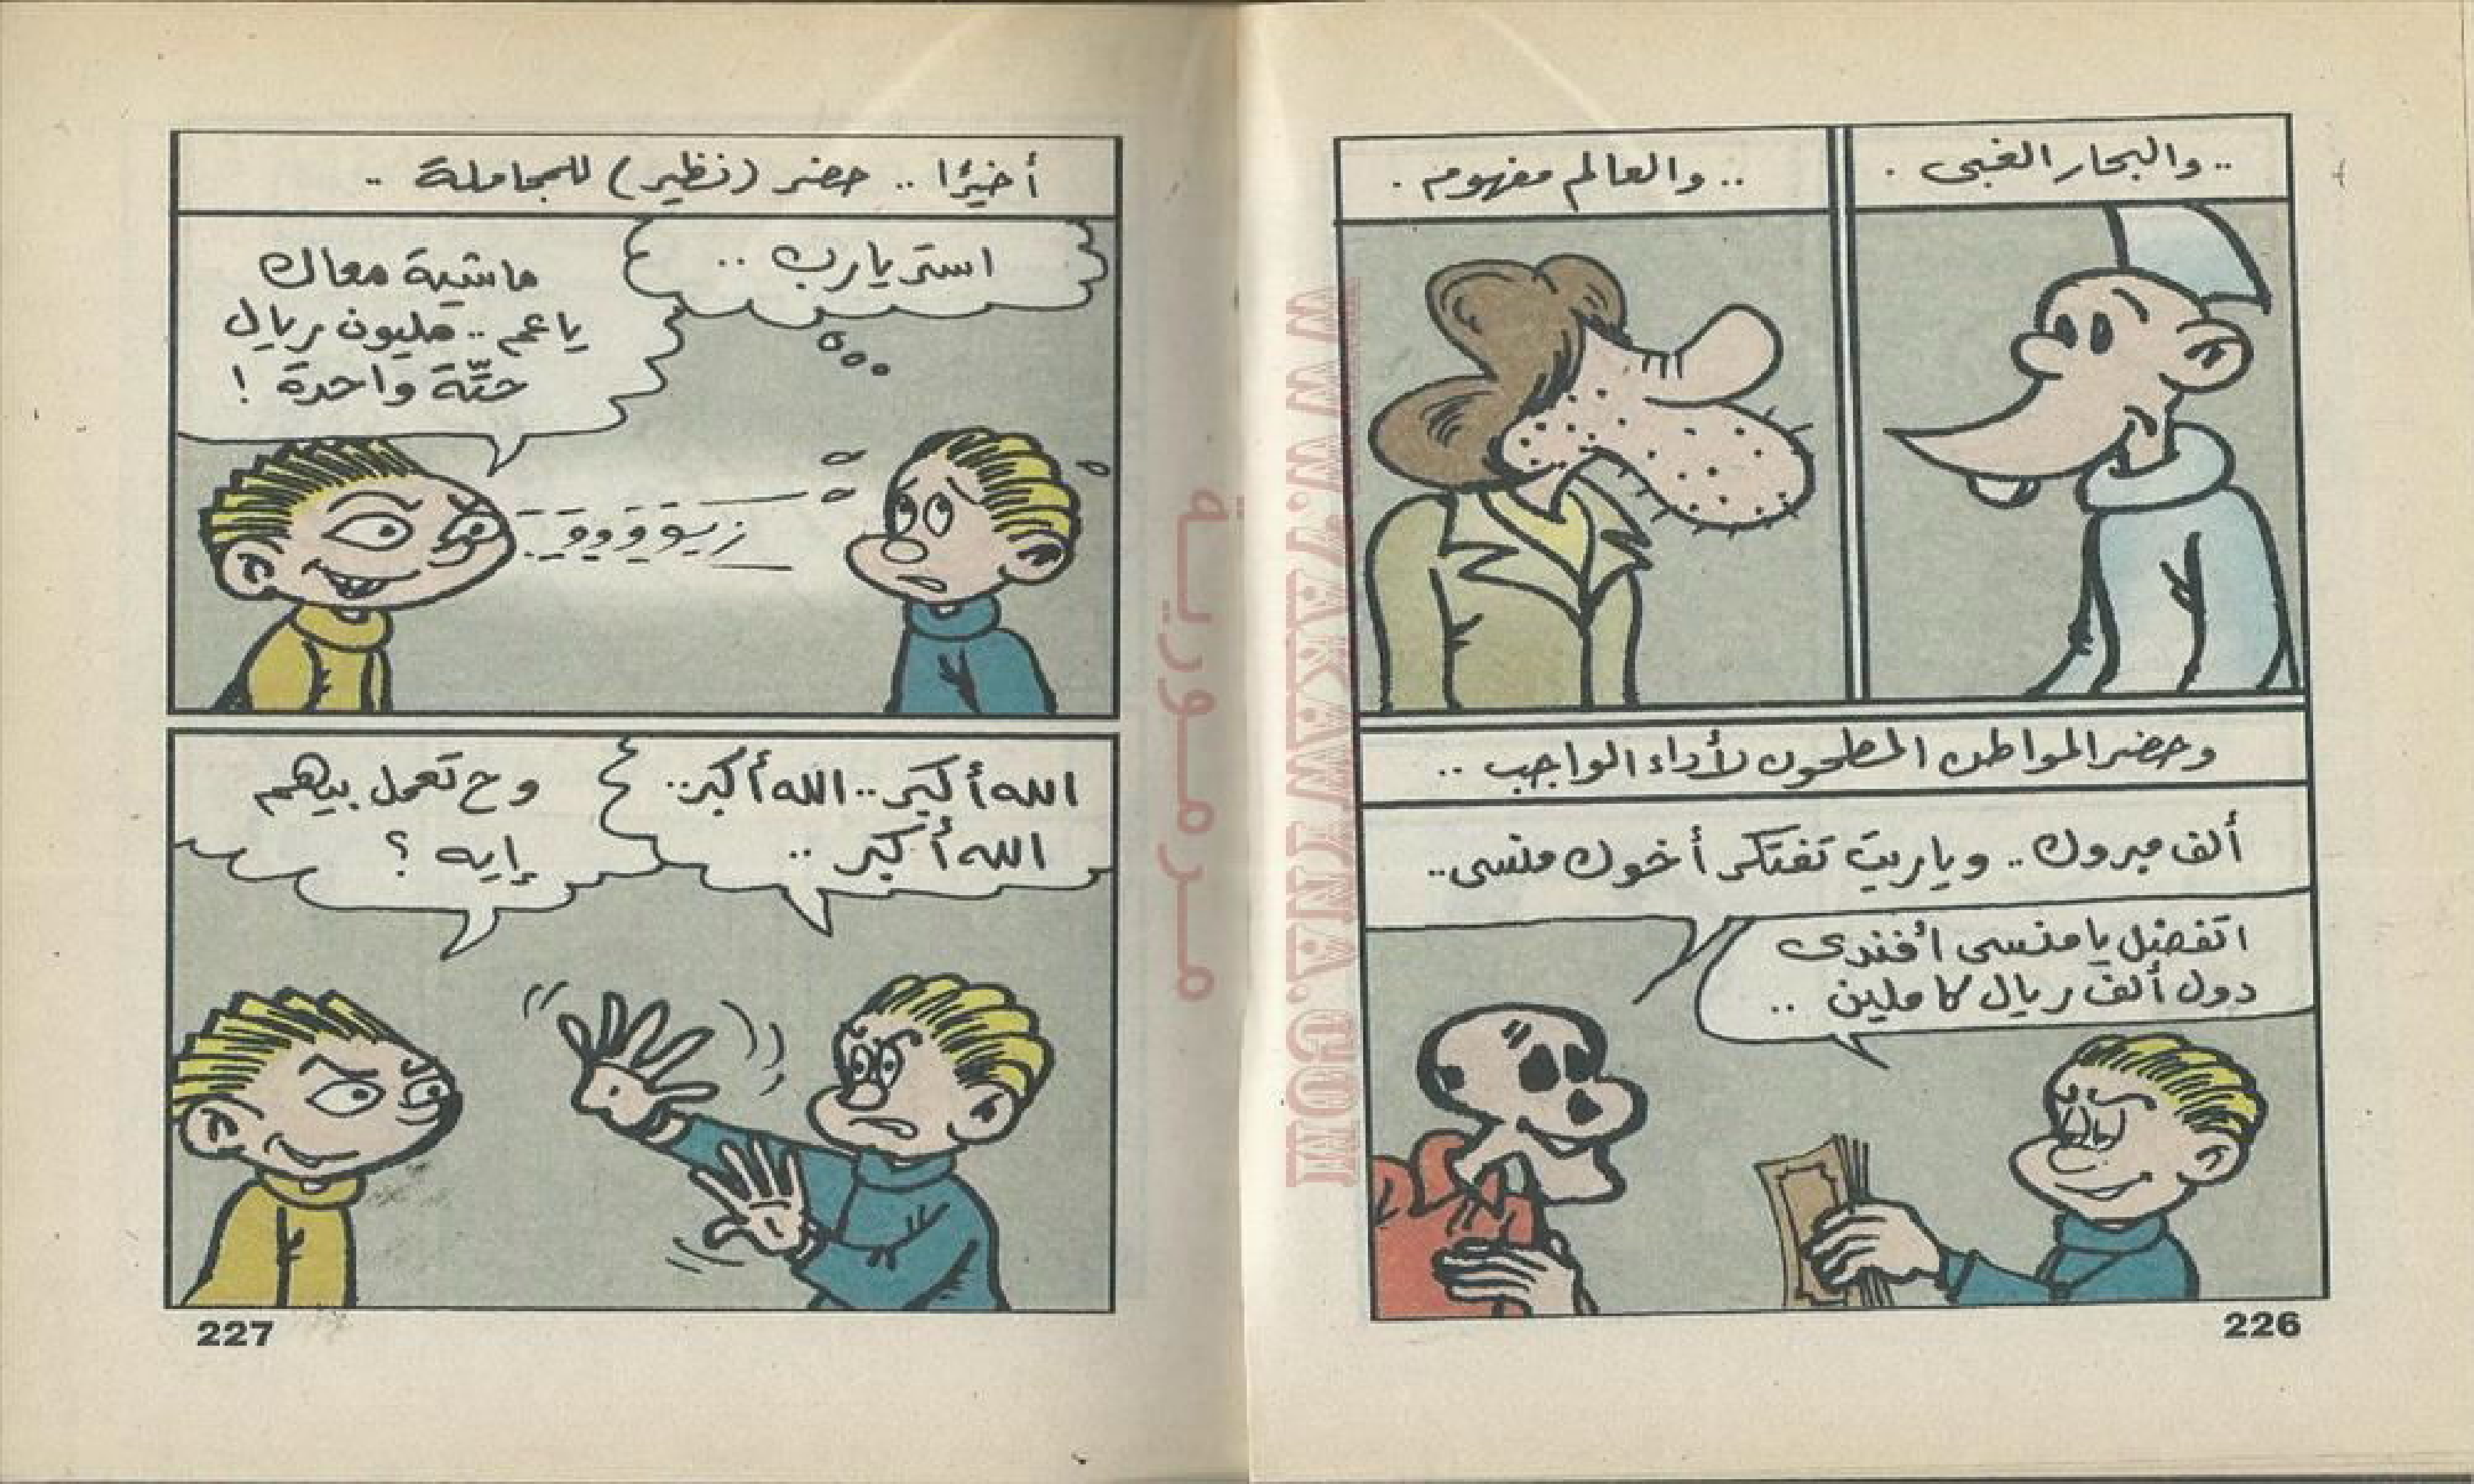 .. والبحار الغبى .
.. والعالم مفهوم .
وحضر المواطن المطحون لأداء الواجب ..
ألف مبروك .. وياريت تفتكر أخوك منسى ..
اتفضل يا منسى أفندى
دول ألف ريال كاملين ..
226
أخيرًا .. حضر (نظير) للمجاملة ..
استر يارب ..
ماشية معاك
يا عم .. مليون ريال
حتّة واحدة !
زيووووو..
الله أكبر .. الله أكبر ..
الله أكبر ..
وح تعمل بيهم
إيه ؟
227
مدرمورية
WWW.ZAKAWINA.COM